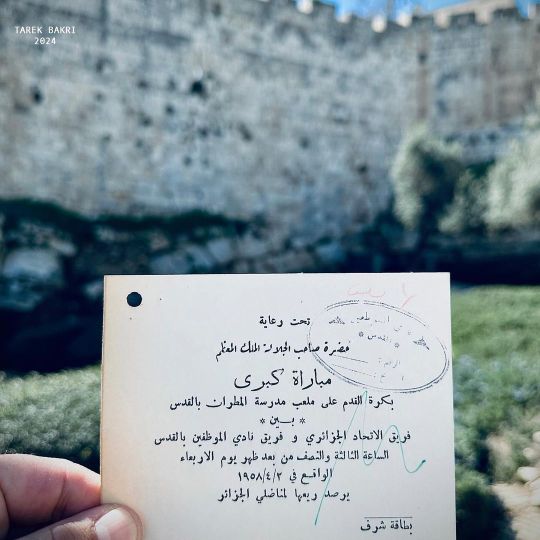 TAREK BAKRI
2024
تحت رعاية
حضرة صاحب الجلالة الملك المعظم
مباراة كبرى
بكرة القدم على ملعب مدرسة المطران بالقدس
* بين *
فريق الاتحاد الجزائري و فريق نادي الموظفين بالقدس
الساعة الثالثة والنصف من بعد ظهر يوم الاربعاء
الواقع في ١٩٥٨/٤/٢
يرصد ريعها لمناضلي الجزائر
بطاقة شرف
* القدس *